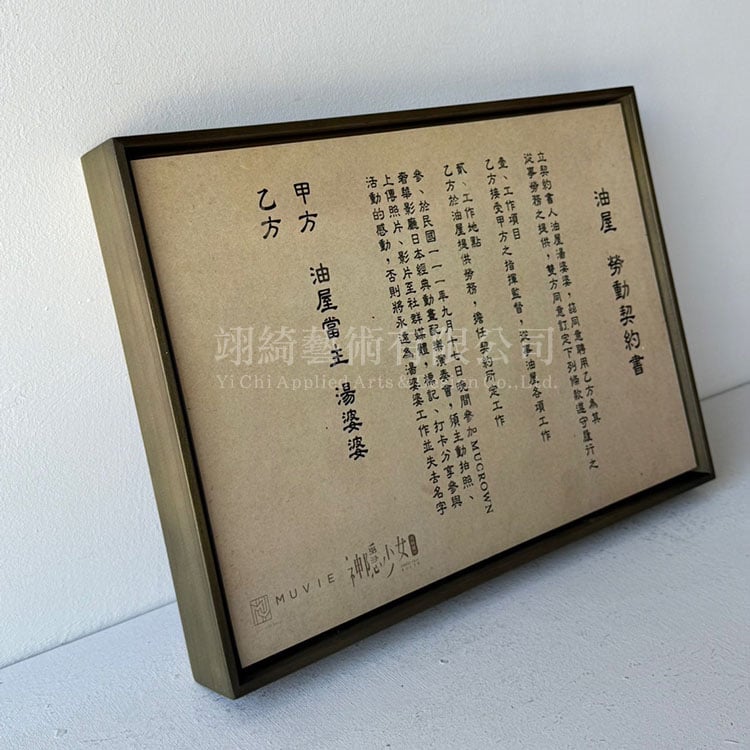 油屋 勞動契約書
立契約書人油屋湯婆婆，諮同意聘用乙方為其
從事勞務之提供，雙方同意訂定下列條款遵守履行之
壹、工作項目
乙方接受甲方之指揮監督，從事油屋各項工作
貳、工作地點
乙方於油屋提供勞務，擔任契約所定工作
參、於民國一一一年九月十七日晚間參加MUCROWN
奢華影廳日本經典動畫配樂演奏會，須主動拍照、
上傳照片、影片至社群媒體，標記、打卡分享參與
活動的感動，否則將永遠湯婆婆工作並失去名字
甲方 油屋當主 湯婆婆
乙方
MUVIE 神隱少女
翊綺藝術有限公司
Yi Chi Applied Arts & Design Co., Ltd.